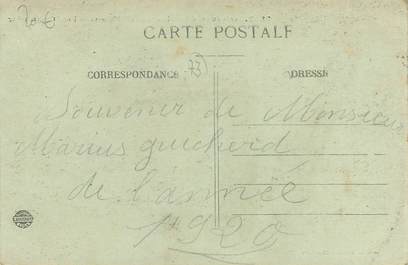 20 €
CARTE POSTALE
CORRESPONDANCE
73
ADRESSE
Souvenir de Monsieur
Marius guicherd
de l'année
1920